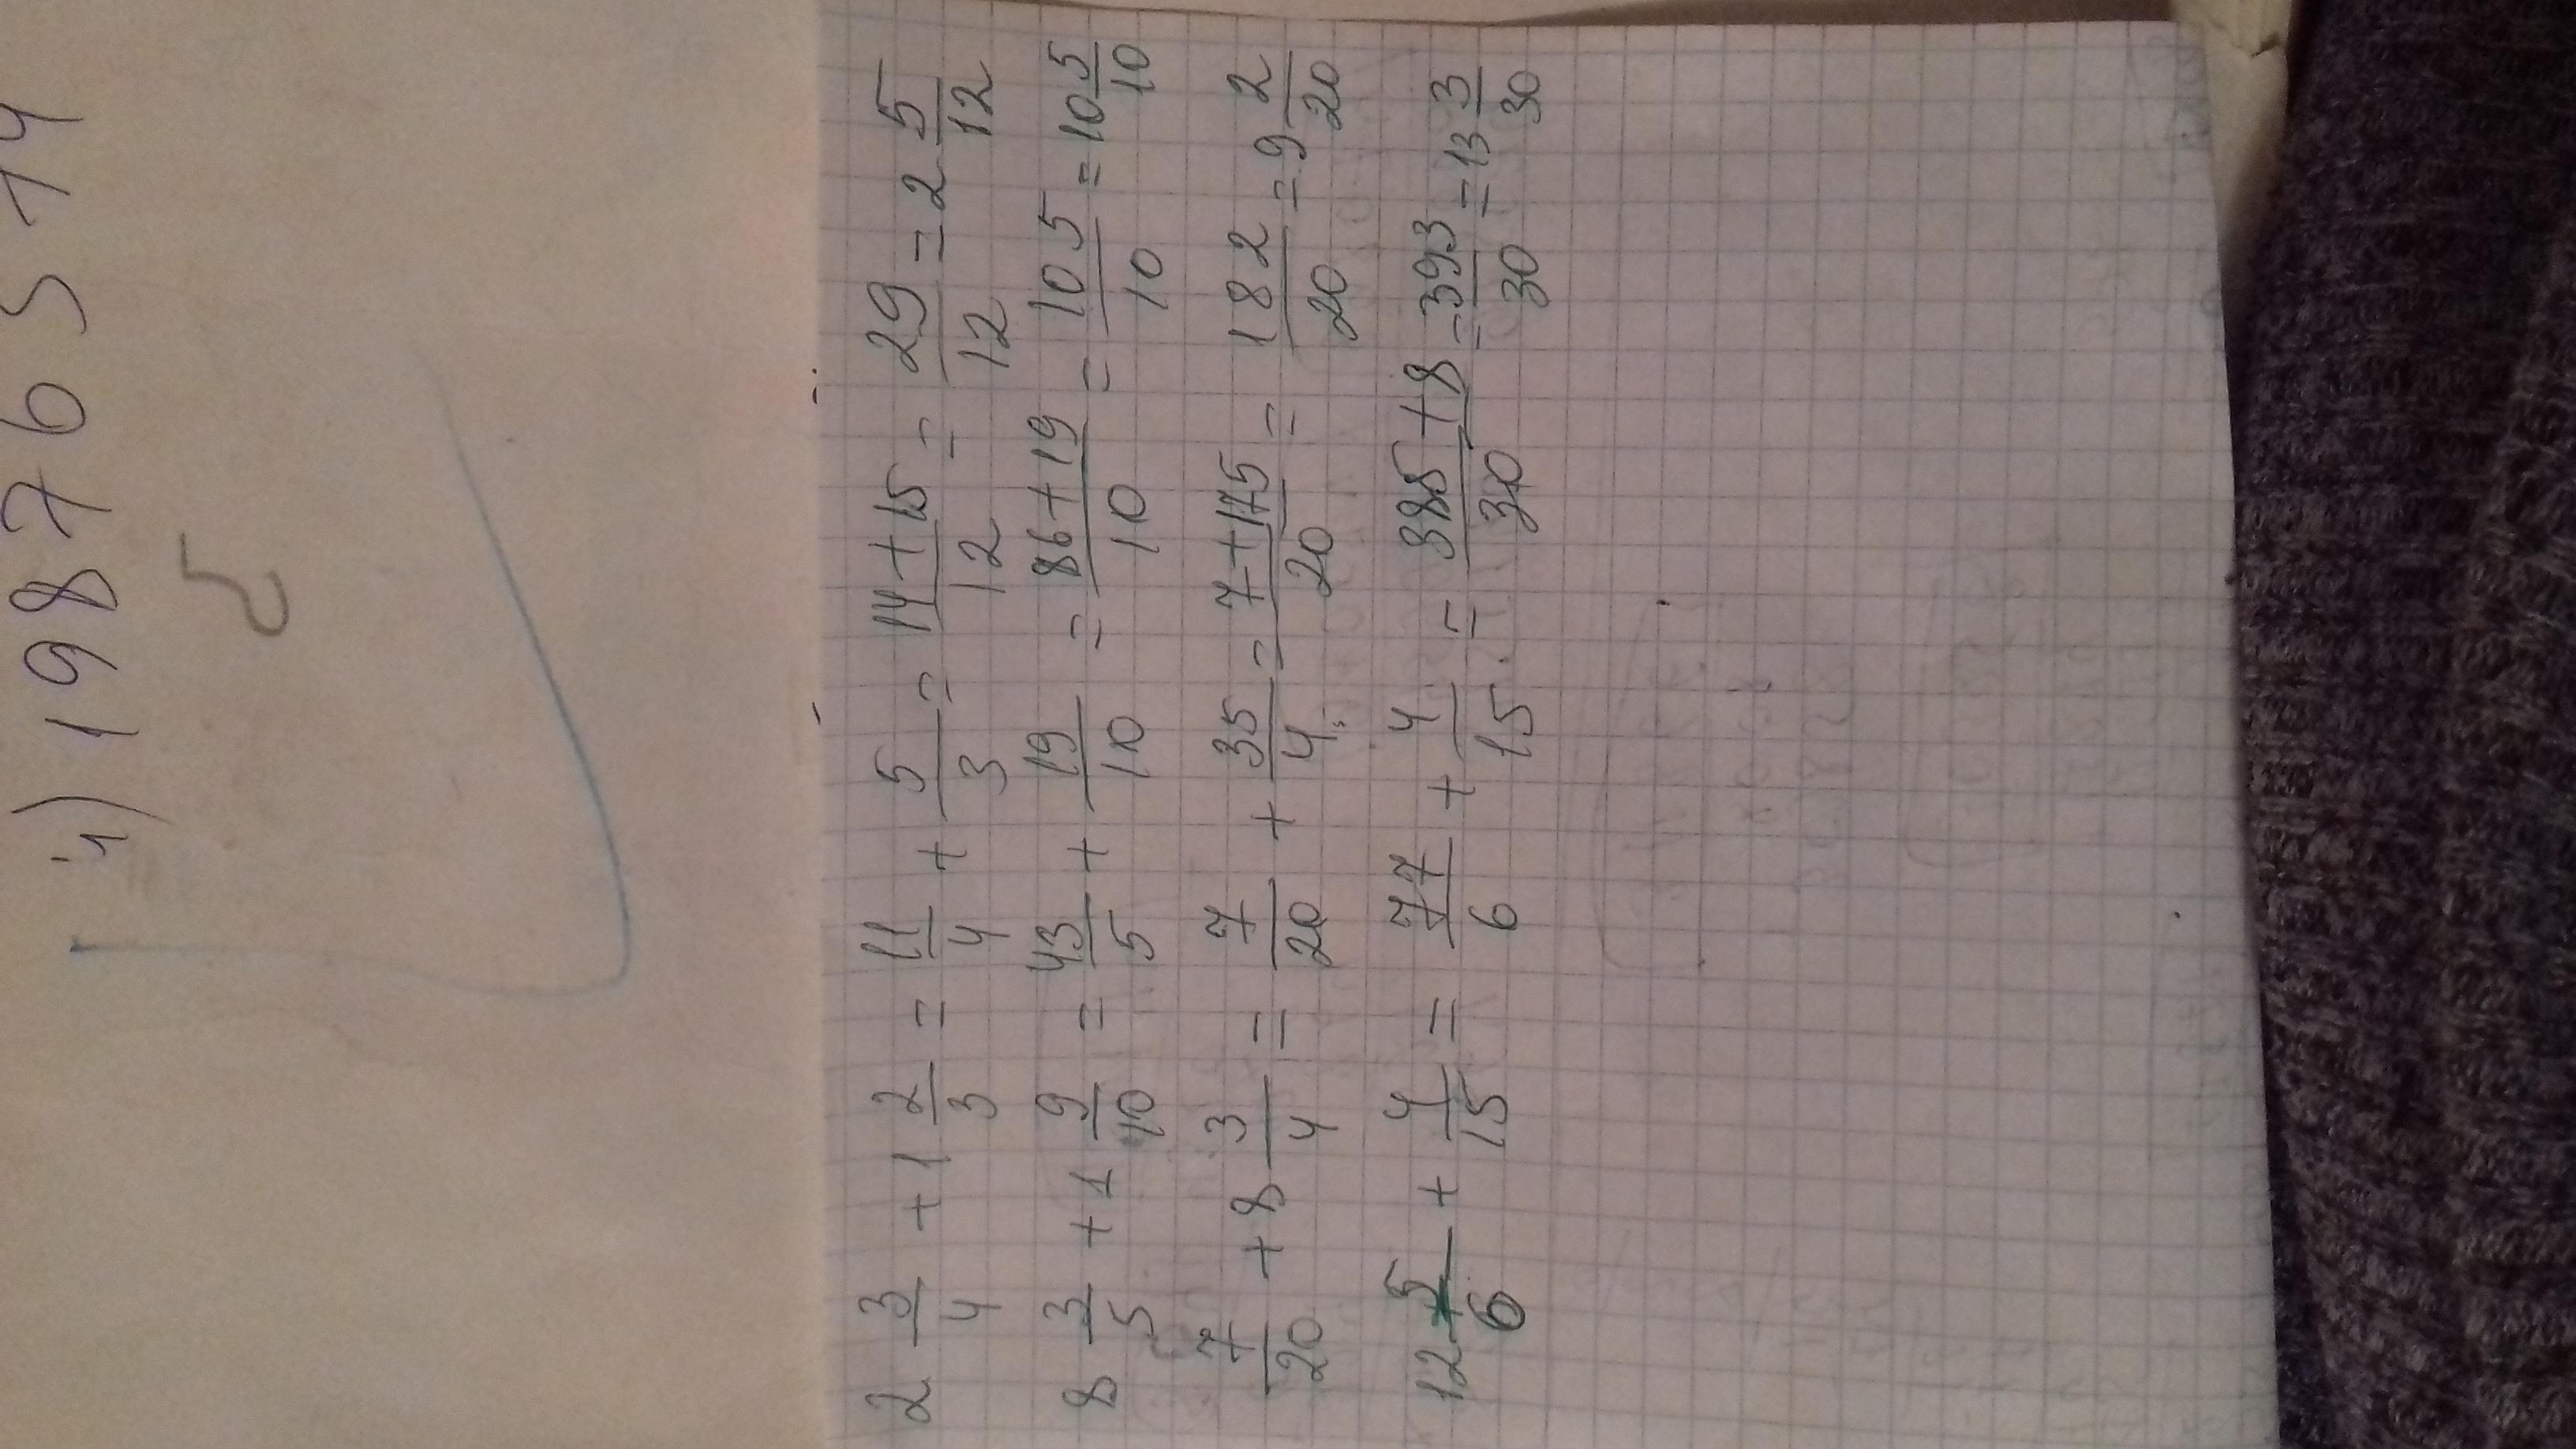 4) 1987654
5
2 3/4 + 1 2/3 = 11/4 + 5/3 = 14+15/12 = 29/12 = 2 5/12
8 3/5 + 1 9/10 = 43/5 + 19/10 = 86+19/10 = 105/10 = 10 5/10
7/20 + 8 3/4 = 7/20 + 35/4 = 7+175/20 = 182/20 = 9 2/20
12 5/6 + 4/15 = 77/6 + 4/15 = 385+8/30 = 393/30 = 13 3/30